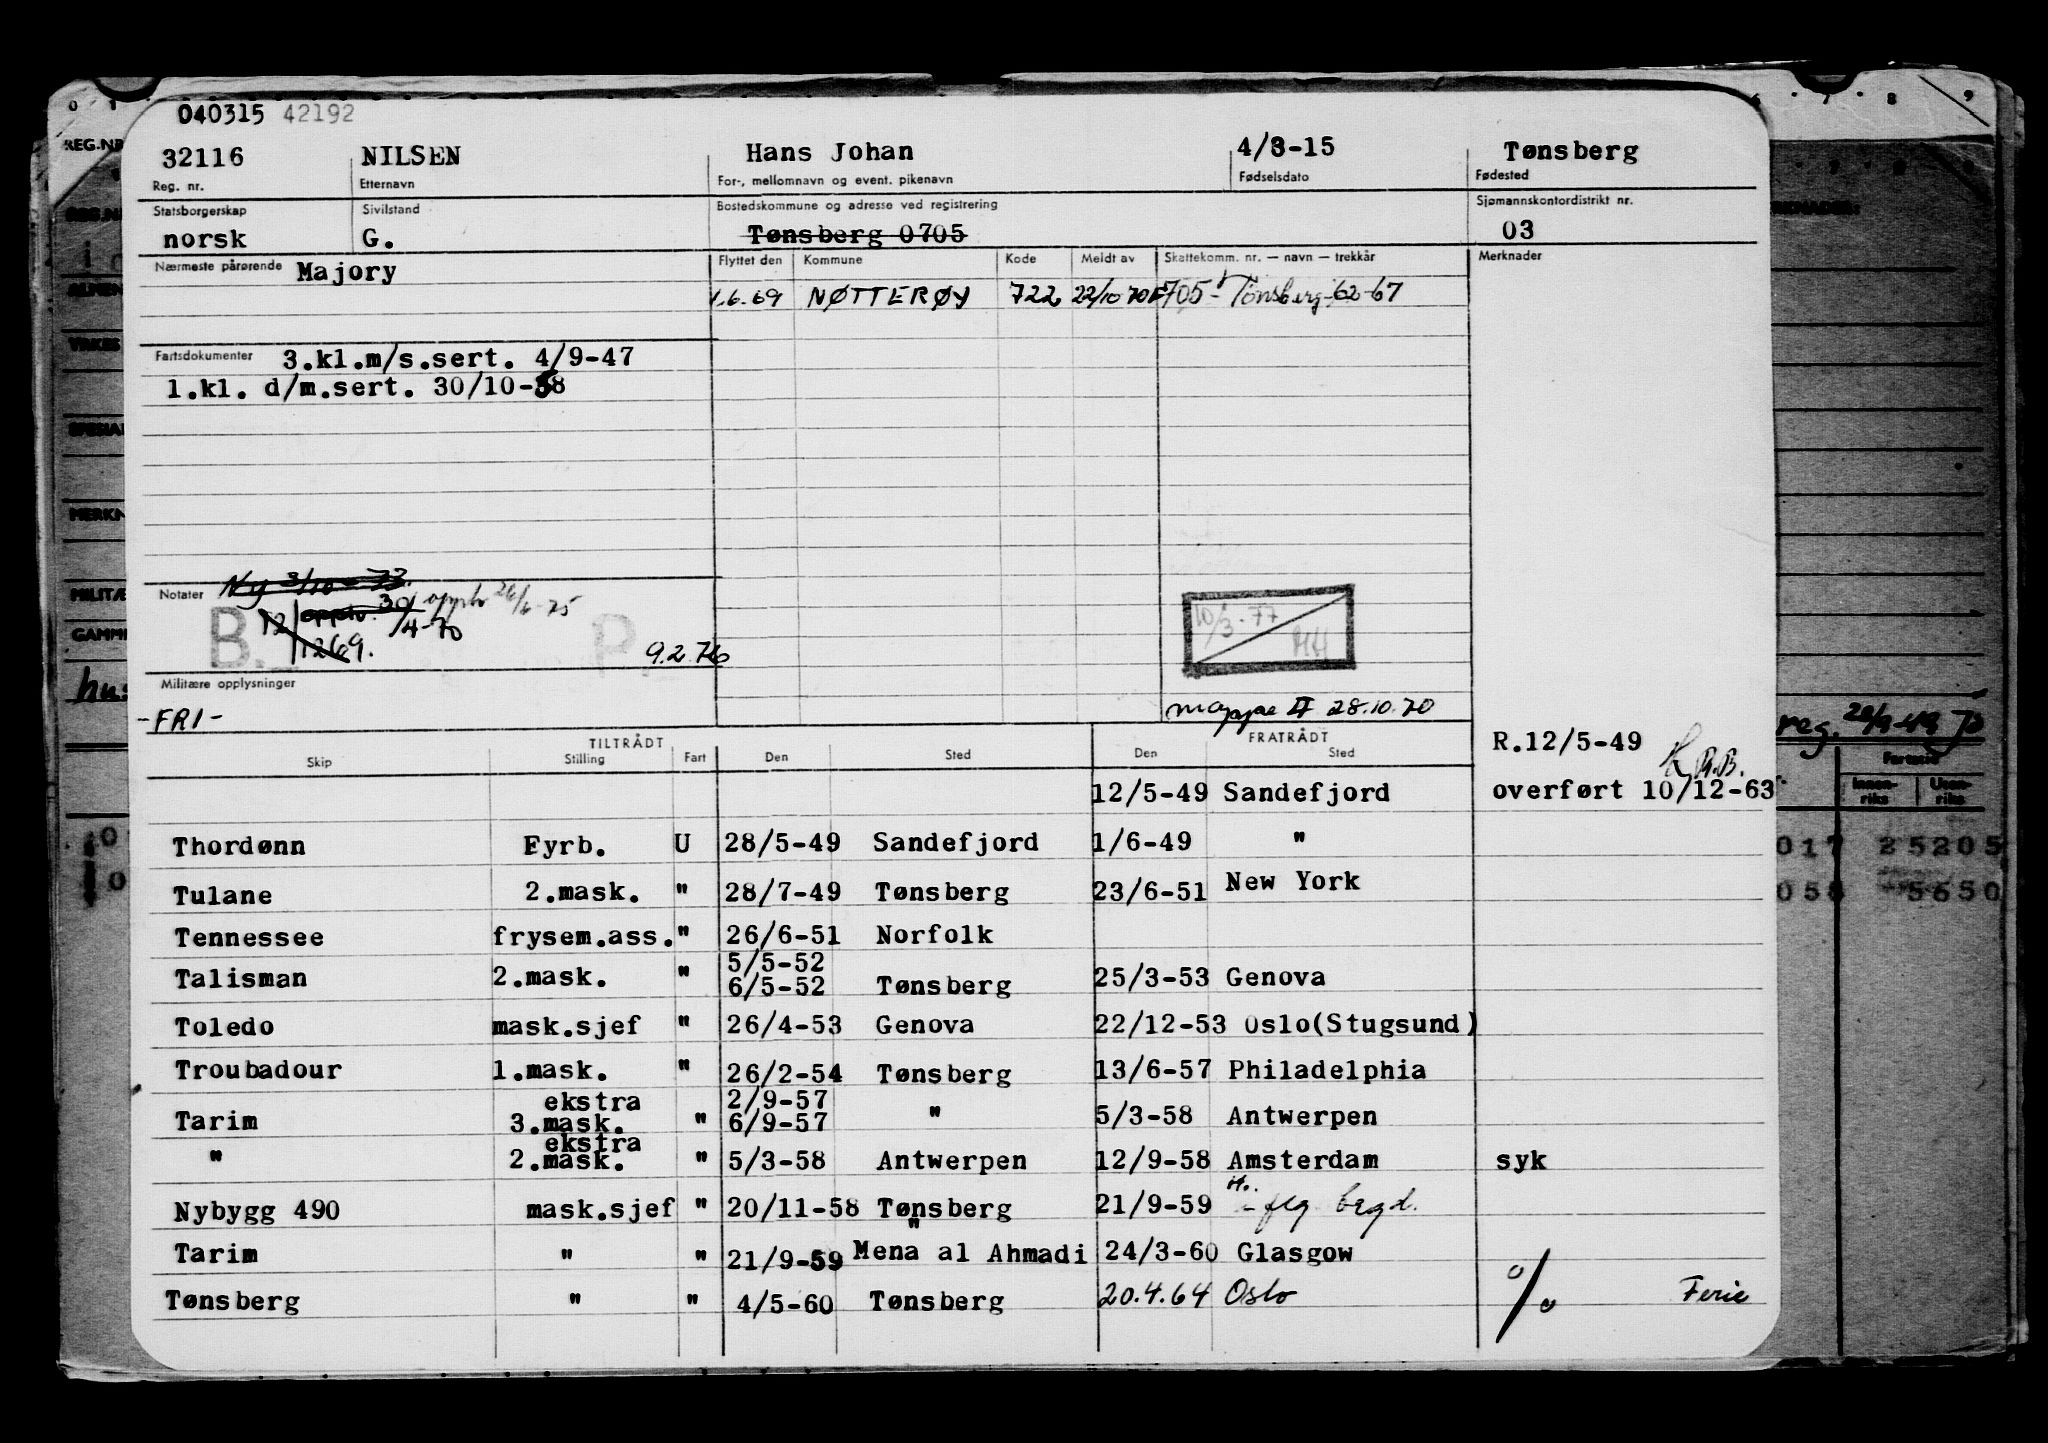 040315 42192
32116 NILSEN Hans Johan 4/3-15 Tønsberg
Reg. nr. Etternavn For-, mellomnavn og event. pikenavn Fødselsdato Fødested
Statsborgerskap Sivilstand Bostedskommune og adresse ved registrering Sjømannskontordistrikt nr.
norsk G. Tønsberg 0705 03
Nærmeste pårørende Majory Flyttet den Kommune Kode Meldt av Skattekomm. nr. — navn — trekkår Merknader
1.6.69 NØTTERØY 722 22/10 70 705 - Tønsberg-62-67
Fartsdokumenter 3.kl.m/s.sert. 4/9-47
1.kl. d/m.sert. 30/10-58
Notater Ny 3/10-73.
B. 12/1269. opphr. 30/4-70 26/6-75
P. 9.2.76
10/3-77 HH
Militære opplysninger
-FRI-
mappe II 28.10.70
TILTRÅDT FRATRÅDT
Skip Stilling Fart Den Sted Den Sted
R.12/5-49
12/5-49 Sandefjord overført 10/12-63
Thordønn Fyrb. U 28/5-49 Sandefjord 1/6-49 "
Tulane 2.mask. " 28/7-49 Tønsberg 23/6-51 New York
Tennessee frysem.ass. " 26/6-51 Norfolk
5/5-52
Talisman 2.mask. " 6/5-52 Tønsberg 25/3-53 Genova
Toledo mask.sjef " 26/4-53 Genova 22/12-53 Oslo(Stugsund)
Troubadour 1.mask. " 26/2-54 Tønsberg 13/6-57 Philadelphia
ekstra 2/9-57
Tarim 3.mask. " 6/9-57 " 5/3-58 Antwerpen
ekstra
" 2.mask. " 5/3-58 Antwerpen 12/9-58 Amsterdam syk
Nybygg 490 mask.sjef " 20/11-58 Tønsberg 21/9-59
"
Tarim " " 21/9-59 Mena al Ahmadi 24/3-60 Glasgow
Tønsberg " " 4/5-60 Tønsberg 20.4.64 Oslo % Ferie
REG.NR
reg. 28/9-49
Fartstid
Innen-riks Uten-riks
017 25205
058 5650